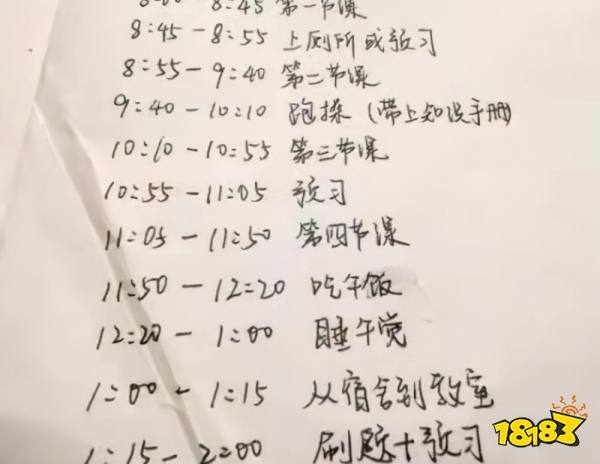 8:00 - 8:45 第一节课
8:45 - 8:55 上厕所或预习
8:55 - 9:40 第二节课
9:40 - 10:10 跑操(带上知识手册)
10:10 - 10:55 第三节课
10:55 - 11:05 预习
11:05 - 11:50 第四节课
11:50 - 12:20 吃午饭
12:20 - 1:00 睡午觉
1:00 - 1:15 从宿舍到教室
1:15 - 2:00 刷题+预习
18183